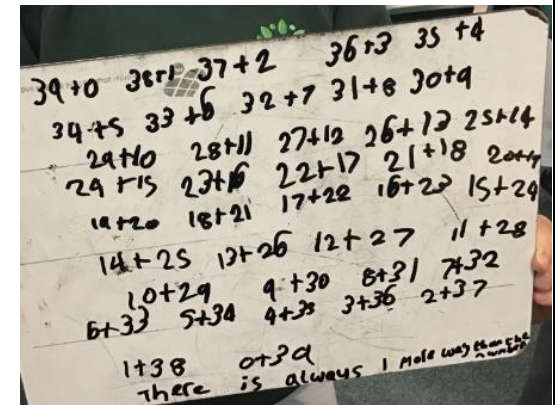 39+0 38+1 37+2 36+3 35+4
34+5 33+6 32+7 31+8 30+9
29+10 28+11 27+12 26+13 25+14
24+15 23+16 22+17 21+18 20+19
19+20 18+21 17+22 16+23 15+24
14+25 13+26 12+27 11+28
10+29 9+30 8+31 7+32
6+33 5+34 4+35 3+36 2+37
1+38 0+39
There is always 1 more way than the number